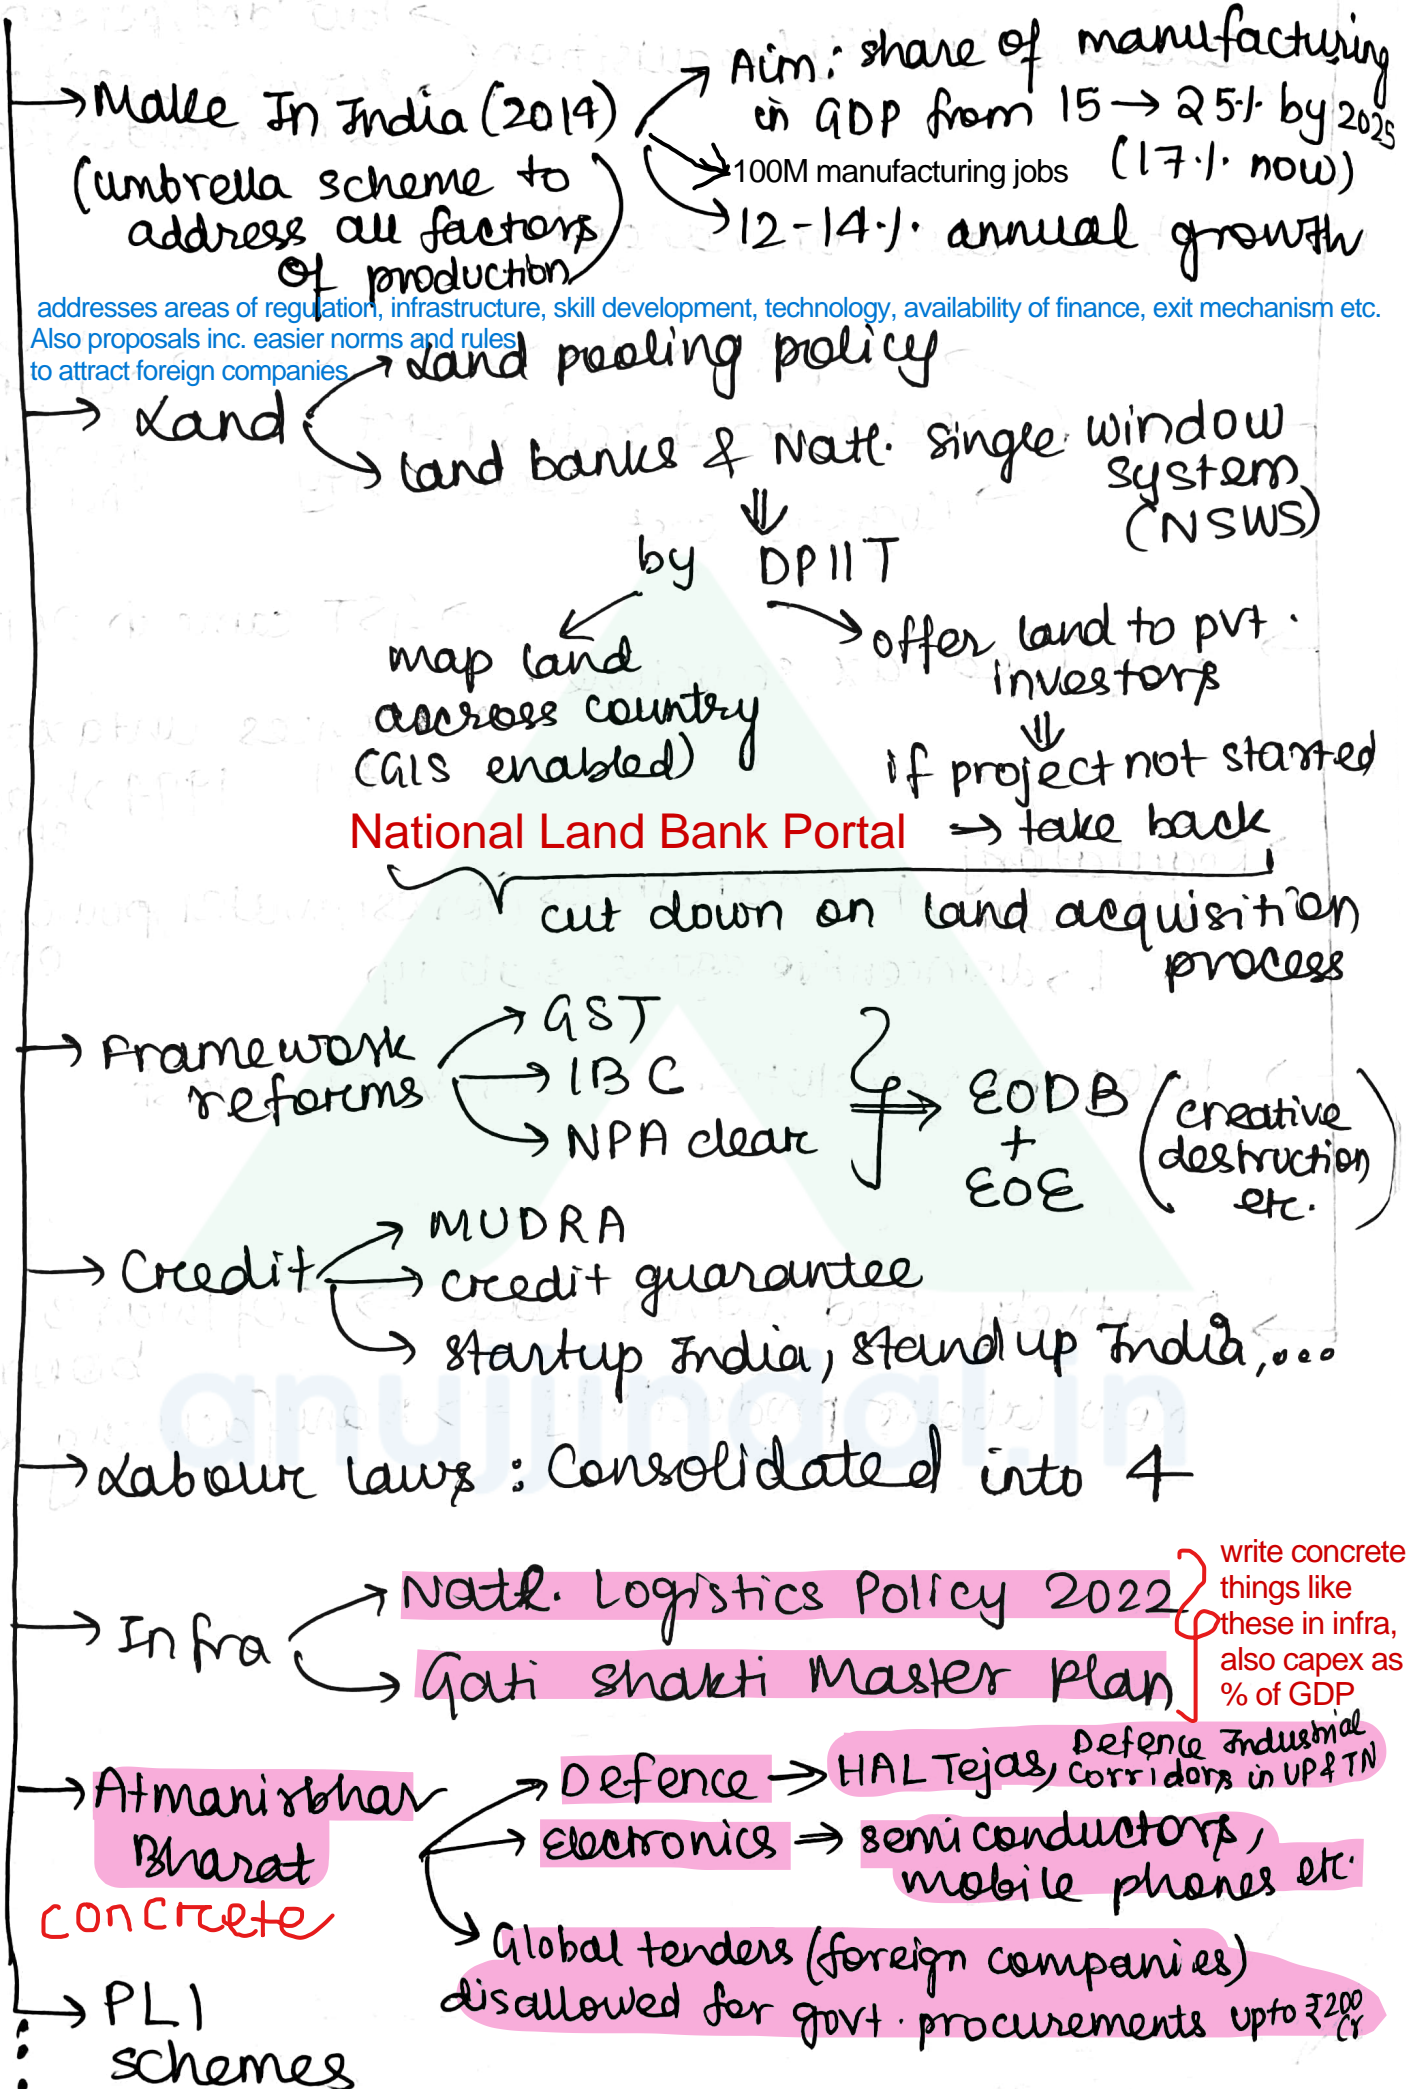 → Make In India (2014)
(umbrella scheme to
address all factors
of production)
→ Aim: share of manufacturing
in GDP from 15 → 25% by 2025
(17% now)
→ 100M manufacturing jobs
→ 12-14% annual growth
addresses areas of regulation, infrastructure, skill development, technology, availability of finance, exit mechanism etc.
Also proposals inc. easier norms and rules
to attract foreign companies
→ Land
→ Land pooling policy
→ land banks & Natl. Single window
system
(NSWS)
⇓
by DPIIT
map land
across country
(GIS enabled)
National Land Bank Portal
→ offer land to pvt.
investors
⇓
if project not started
→ take back
cut down on land acquisition
process
→ Framework
reforms
→ GST
→ IBC
→ NPA clear
⇒ EODB
+
EOE
(creative
destruction
etc.)
→ Credit
→ MUDRA
→ credit guarantee
→ startup India, standup India,...
anujjindal.in
→ Labour laws: Consolidated into 4
→ Infra
→ Natl. Logistics Policy 2022
→ Gati Shakti Master Plan
write concrete
things like
these in infra,
also capex as
% of GDP
→ Atmanirbhar
Bharat
concrete
→ Defence → HAL Tejas, Defence Industrial
Corridors in UP & TN
→ Electronics → semiconductors,
mobile phones etc.
→ Global tenders (foreign companies)
disallowed for govt. procurements upto ₹200
Cr
→ PLI
schemes